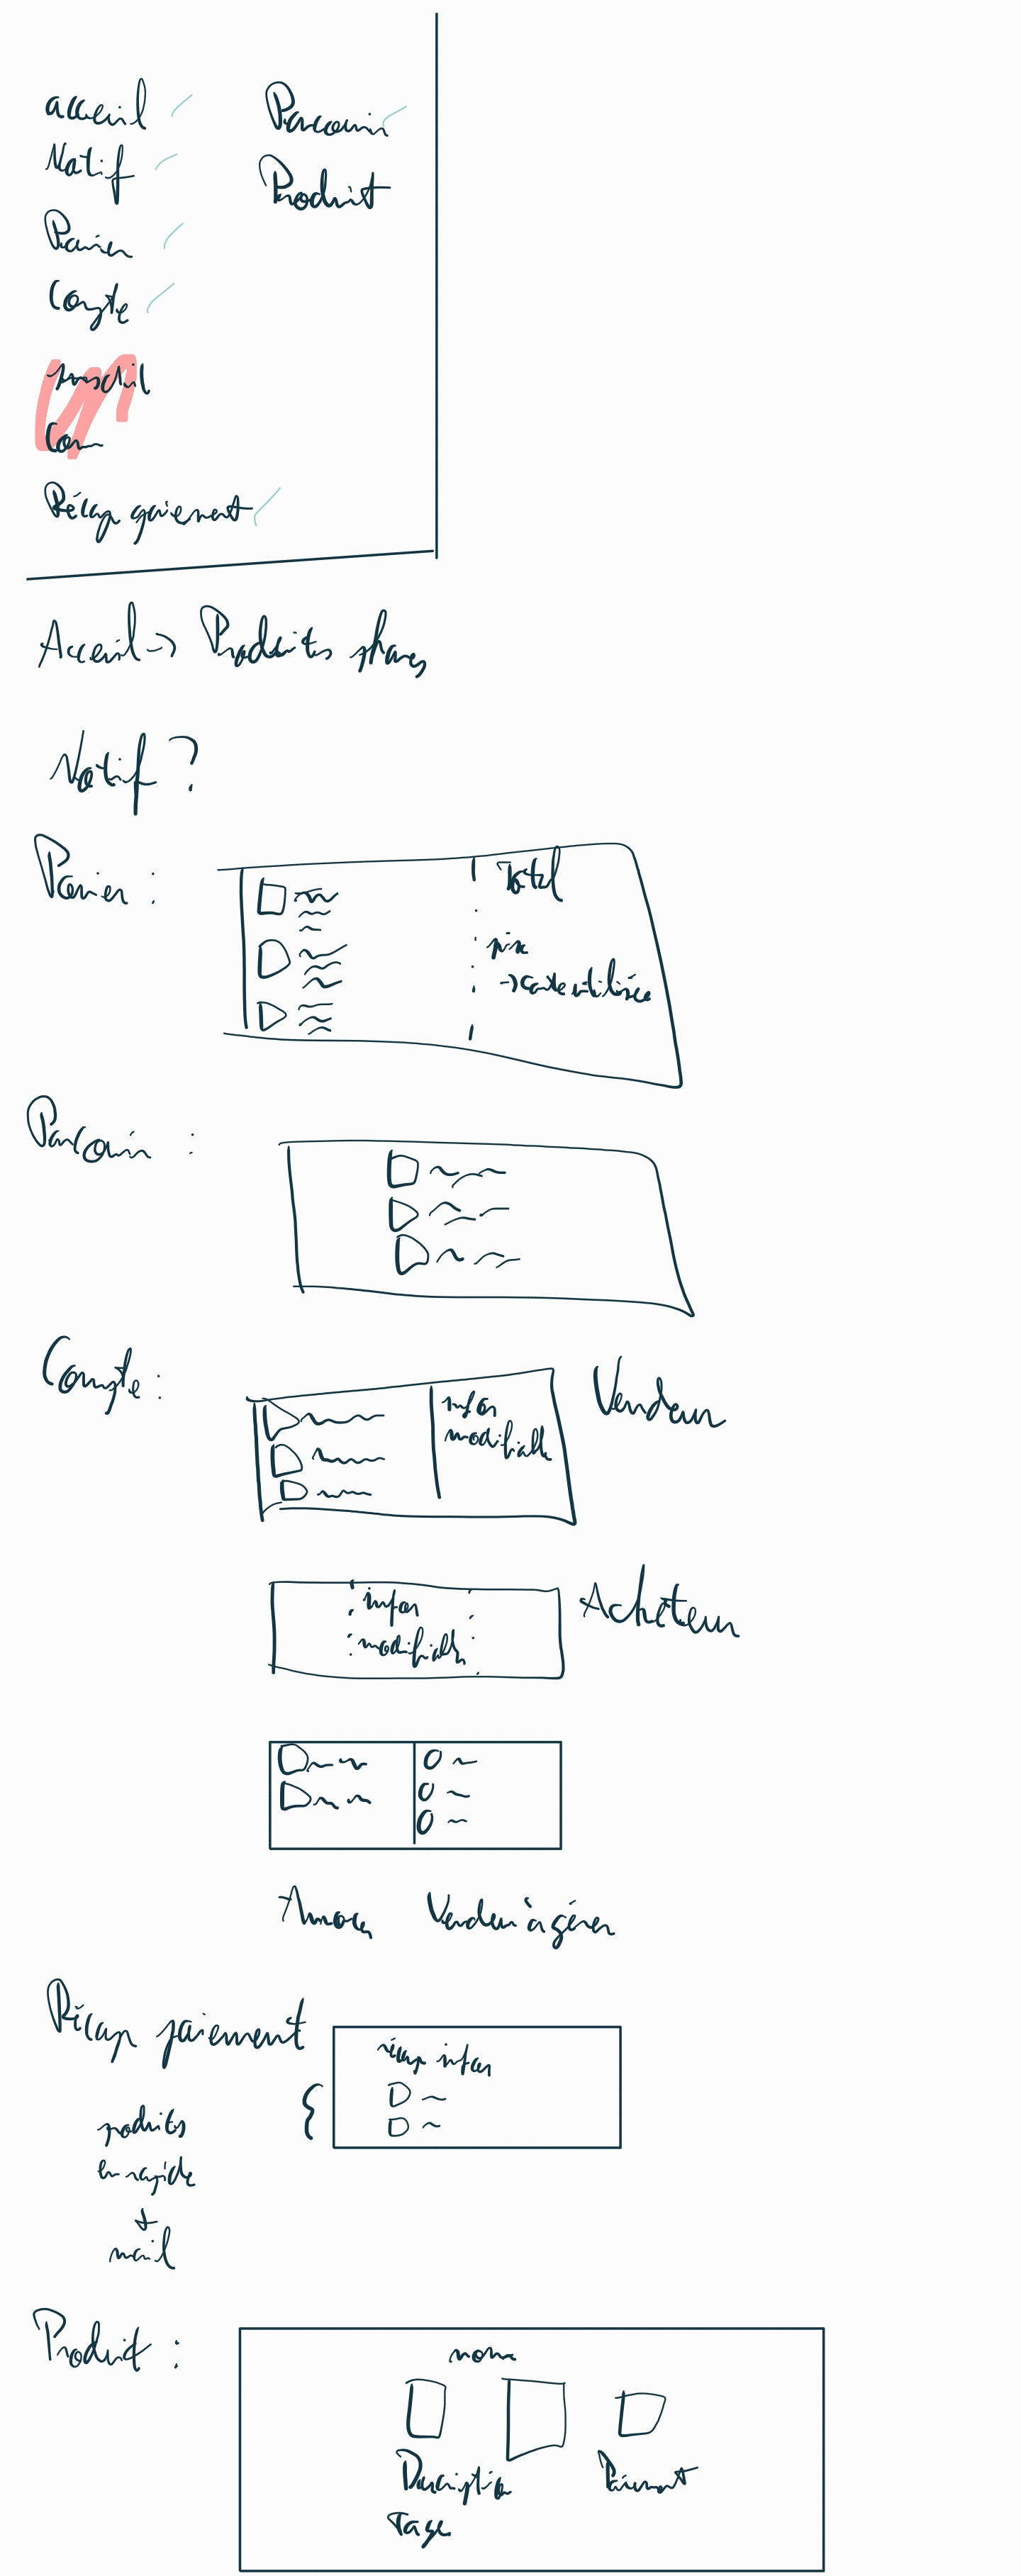 acceuil
Notif
Panier
Compte
Récap paiement
Parcourir
Produit
Acceuil -> Produits phares
Notif ?
Panier :
Total
prix
-> carte utilisée
Parcourir :
Compte :
infos
modifiable
Vendeur
infos
modifiable
Acheteur
Vendeur à gérer
Récap paiement
récap infos
produits
en rapide
+
mail
Produit :
nom
Description
Paiement
Tags